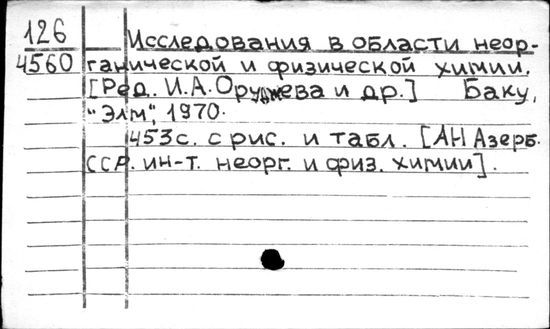 126
4560
Исследования в области неор-
ганической и физической химии.
[Ред. И.А. Оруджева и др.] Баку,
"Элм", 1970.
453с. с рис. и табл. [АН Азерб.
ССР. ин-т. неорг. и физ. химии].